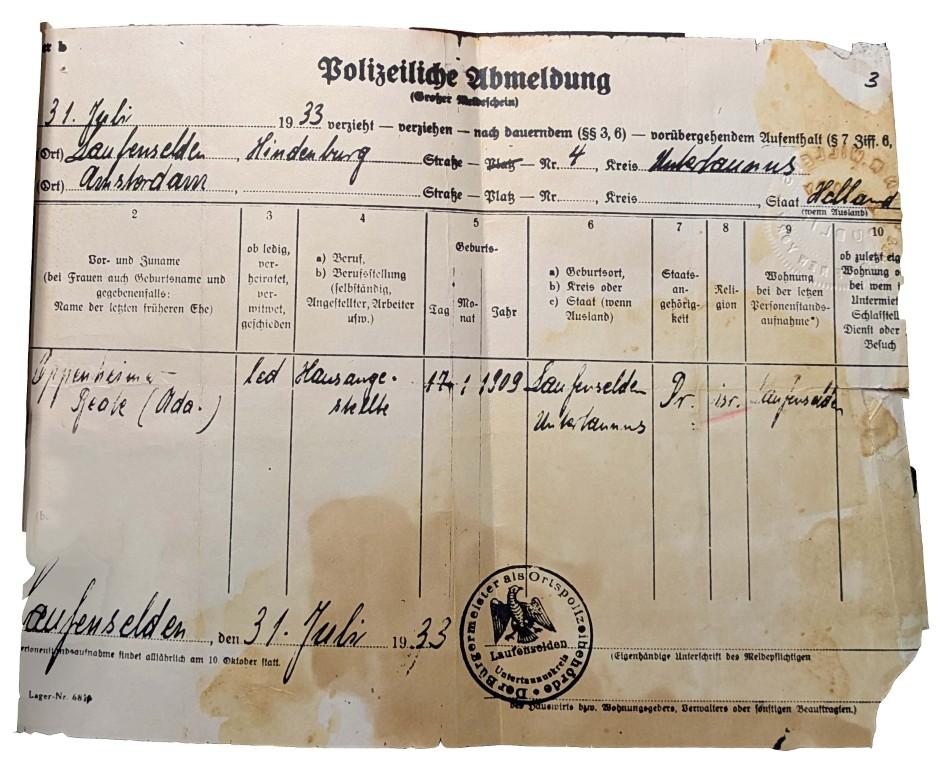 Polizeiliche Abmeldung
(Großer Meldeschein)
3
31. Juli 1933 verzieht — verziehen — nach dauerndem (§§ 3, 6) — vorübergehendem Aufenthalt (§ 7 Ziff. 6,
(Ort) Laufenselden, Hindenburg Straße — Platz — Nr. 4, Kreis Untertaunus
(Ort) Amsterdam, Straße — Platz — Nr., Kreis, Staat Holland
(wenn Ausland)
2 3 4 5 6 7 8 9 10
Vor- und Zuname
(bei Frauen auch Geburtsname und
gegebenenfalls:
Name der letzten früheren Ehe)
ob ledig,
ver-
heiratet,
ver-
witwet,
geschieden
a) Beruf,
b) Berufsstellung
(selbständig,
Angestellter, Arbeiter
usw.)
Geburts-
Tag Mo-
nat Jahr
a) Geburtsort,
b) Kreis oder
c) Staat (wenn
Ausland)
Staats-
an-
gehörig-
keit
Reli-
gion
Wohnung
bei der letzten
Personenstands-
aufnahme*)
ob zuletzt eig
Wohnung o
bei wem
Untermiet
Schlafstell
Dienst oder
Besuch
Oppenheimer led Hausange- 17. 1 1909 Laufenselden Pr. isr. Laufenselden
(Ada.) stellte Untertaunus
Laufenselden, den 31. Juli 1933
aufnahme findet alljährlich am 10 Oktober statt.
Lager-Nr.
Der Bürgermeister als Ortspolizeibehörde
Laufenselden
Untertaunuskreis
(Eigenhändige Unterschrift des Meldepflichtigen
des Hauswirts bzw. Wohnungsgebers, Verwalters oder sonstigen Beauftragten.)